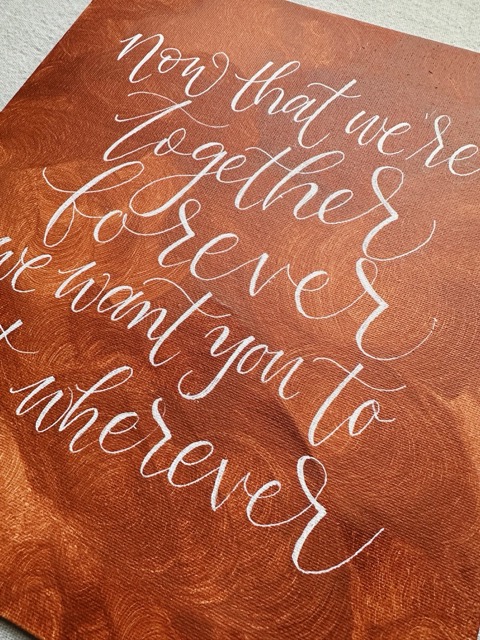 now that we're
together
forever
we want you to
wherever